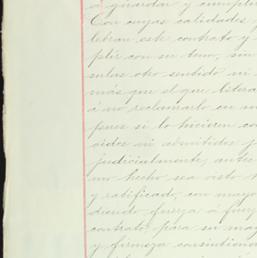 á guardar y cumplir
Con cuyas calidades,
lebran este contrato y
plir con su tenor, sin
sulas otro sentido ni
más que el que litera
á no reclamarlo en
pues si lo hicieren
oidos ni admitidos
judicialmente, antes
mo hecho sea visto
y ratificado, con mayo
diendo fuerza á fuerza
contrato para su may
y firmeza consintiendo